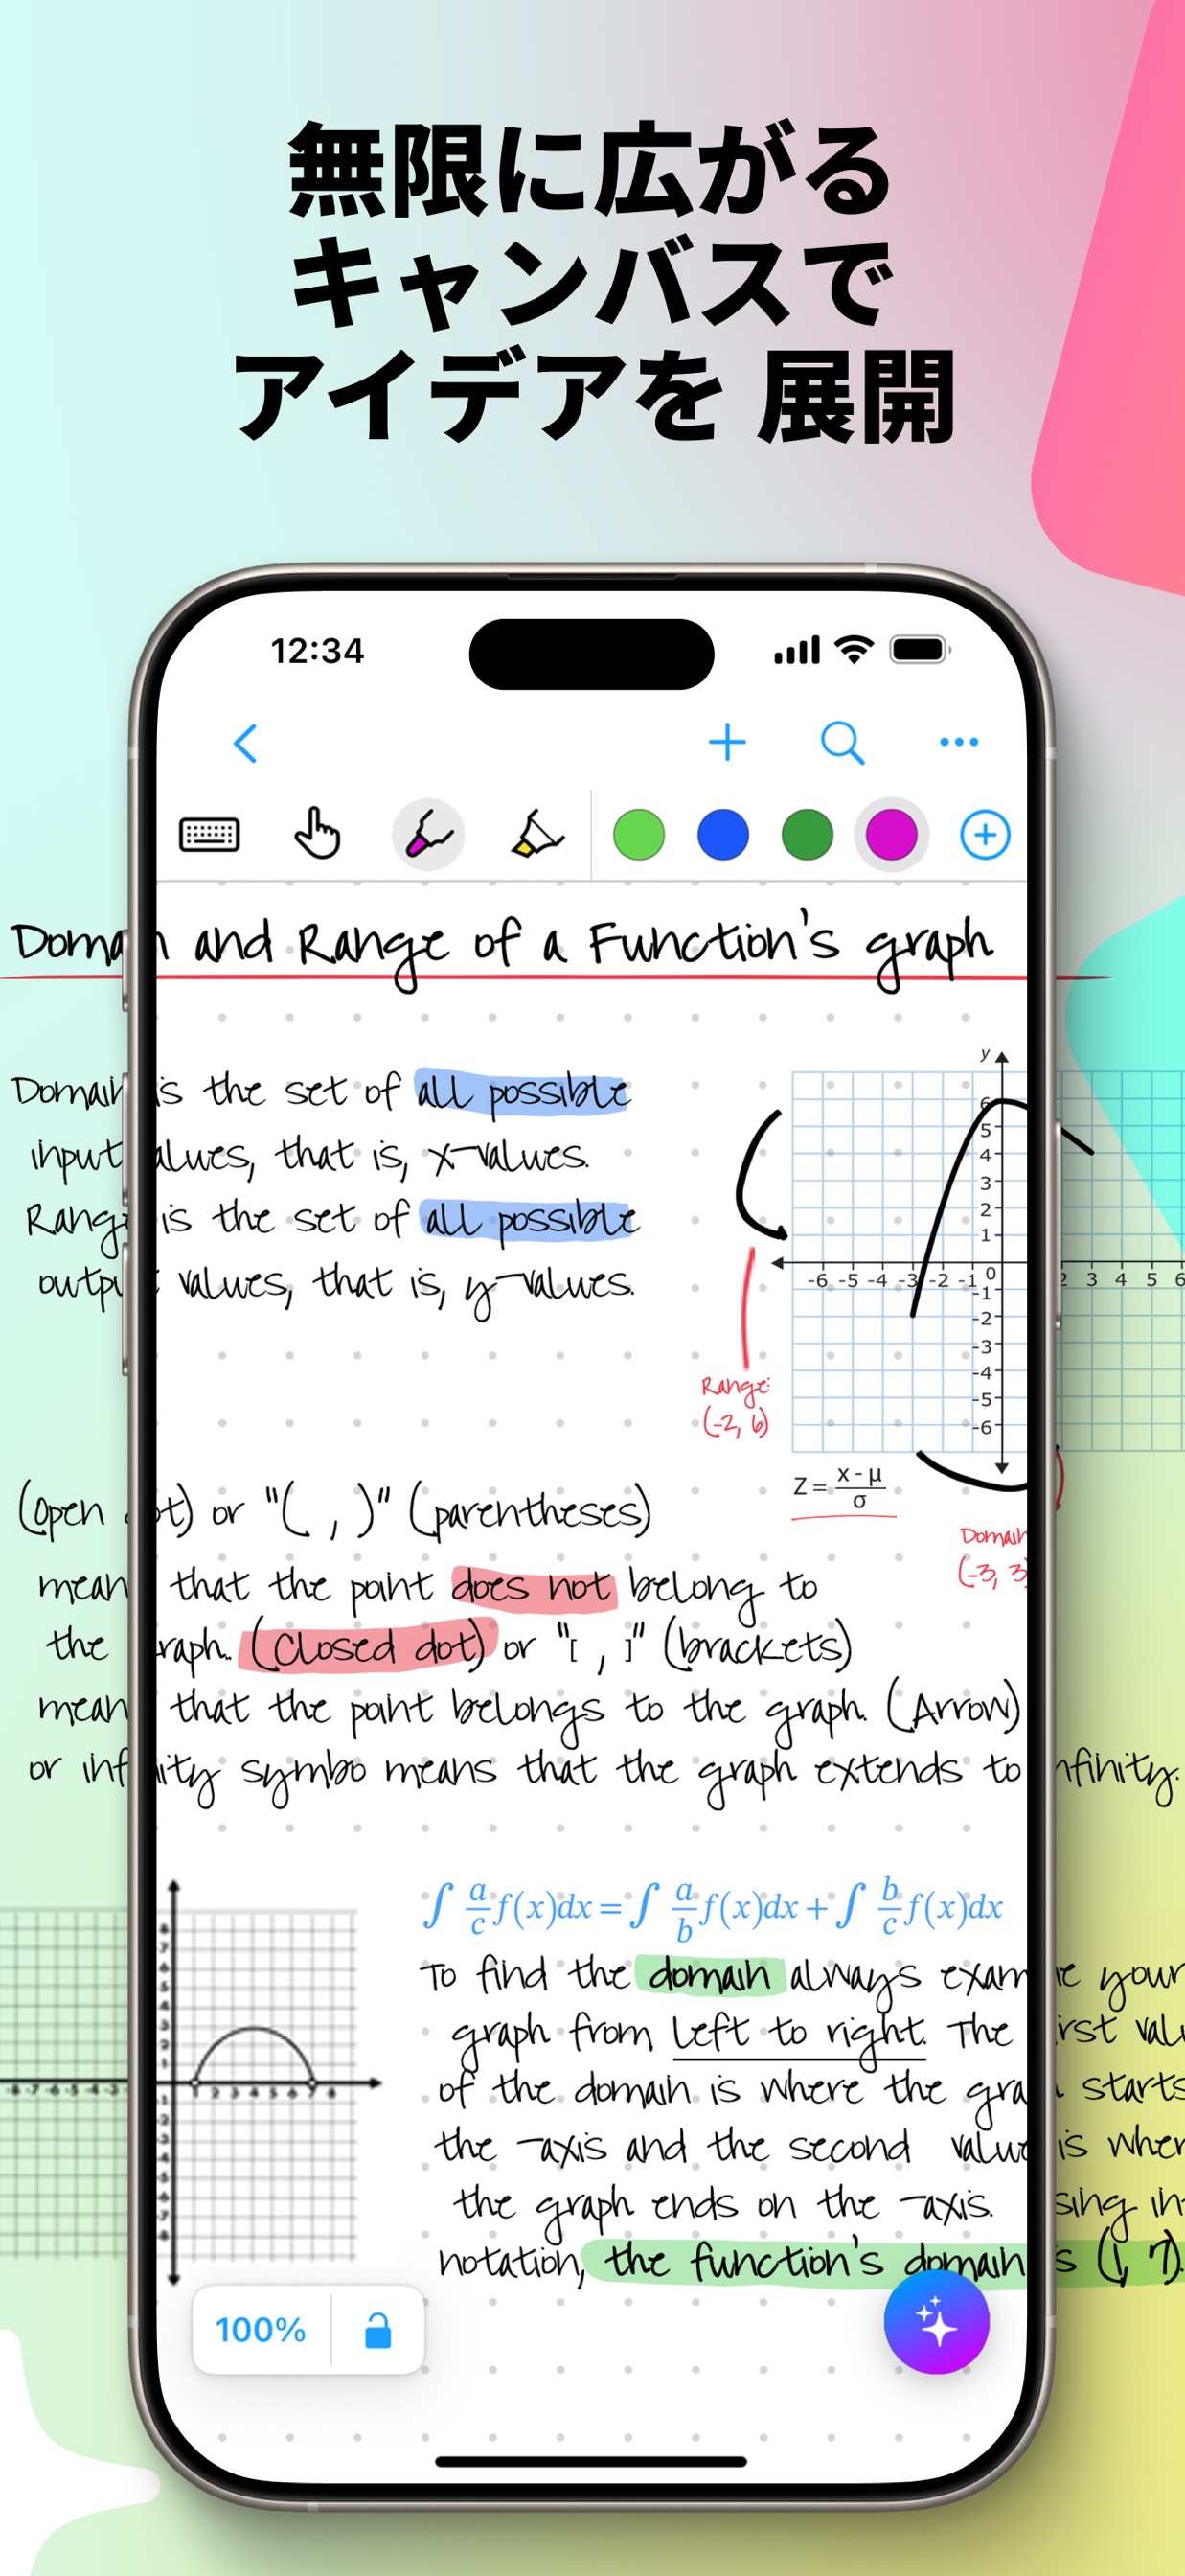 無限に広がる
キャンバスで
アイデアを 展開
12:34
Domain and Range of a Function's graph
Domain is the set of all possible
input values, that is, x-values.
Range is the set of all possible
output values, that is, y-values.
y
6
5
4
3
2
1
-6 -5 -4 -3 -2 -1 0 2 3 4 5 6
-1
-2
-3
-4
-5
-6
Range:
(-2, 6)
Z = x - μ / σ
Domain
(-3, 3
(Open dot) or "( , )" (parentheses)
means that the point does not belong to
the graph. (Closed dot) or "[ , ]" (brackets)
means that the point belongs to the graph. (Arrow)
or infinity symbo means that the graph extends to infinity.
∫ a/c f(x)dx = ∫ a/b f(x)dx + ∫ b/c f(x)dx
To find the domain always examine your
graph from left to right. The first valu
of the domain is where the graph starts
the -axis and the second value is wher
the graph ends on the -axis. sing in
notation, the function's domain is (1, 7).
100%